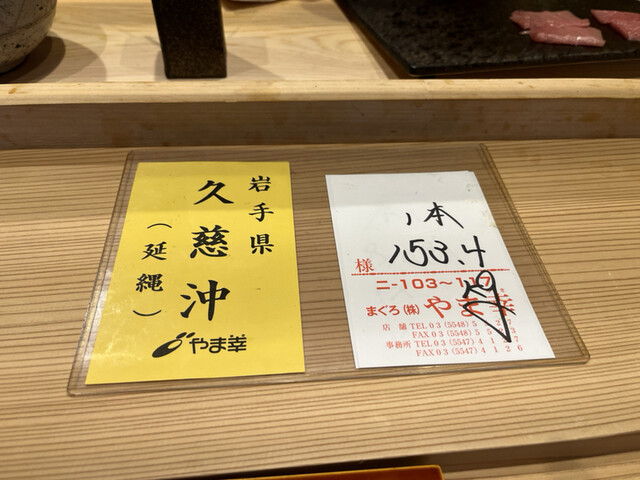 岩手県
久慈沖
（延縄）
やま幸
1本
153.4
様
ニ-103～117
まぐろ（株）やま幸
店舗 TEL 03 (5548) 5
FAX 03 (5548) 5
事務所 TEL 03 (5547) 4
FAX 03 (5547) 4126